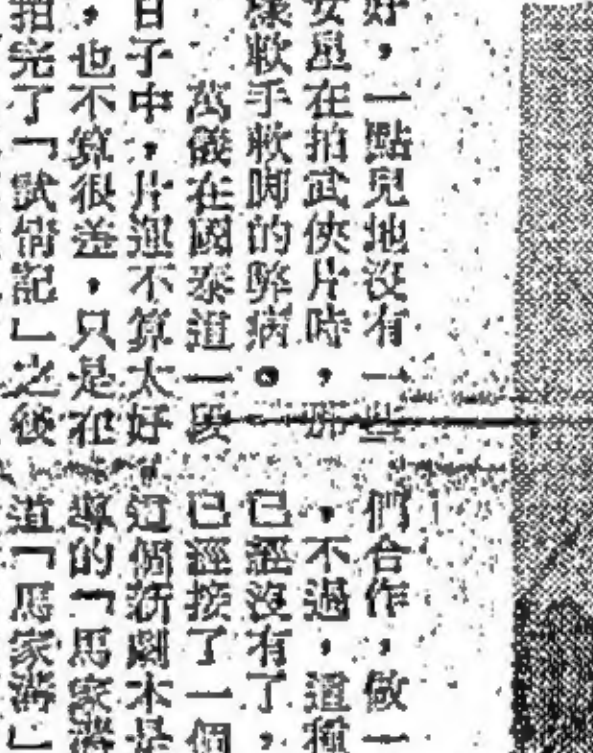 好，一點兒也沒有一些
女星在拍武俠片時，那
樣軟手軟脚的弊病。
萬儀在國泰這一段
日子中，片運不算太好
，也不算很差，只是在
拍完了「試情記」之後
們合作，做一
，不過，這種
已經沒有了，
已經接了一個
這個新劇本是
導的「馬家溝
這「馬家溝」